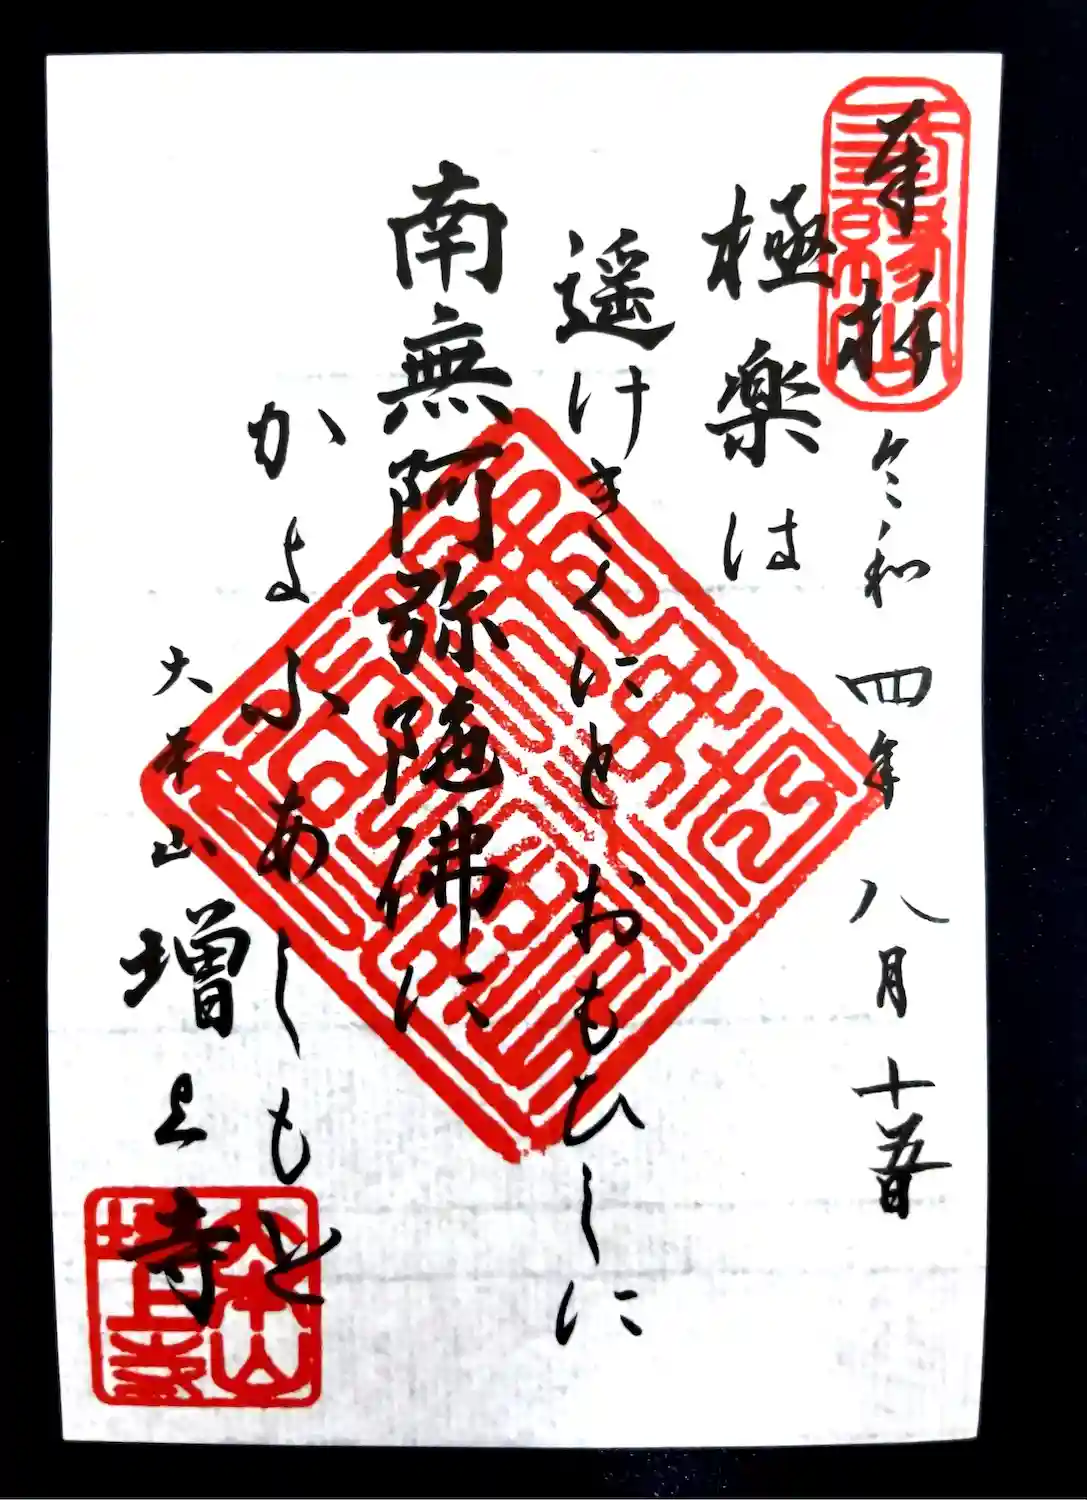 奉拝
令和四年八月十五日
極楽は
遥けきくにとおもひしに
南無阿弥陀佛に
かよふあしもと
大本山
増上寺
大本山
増上寺